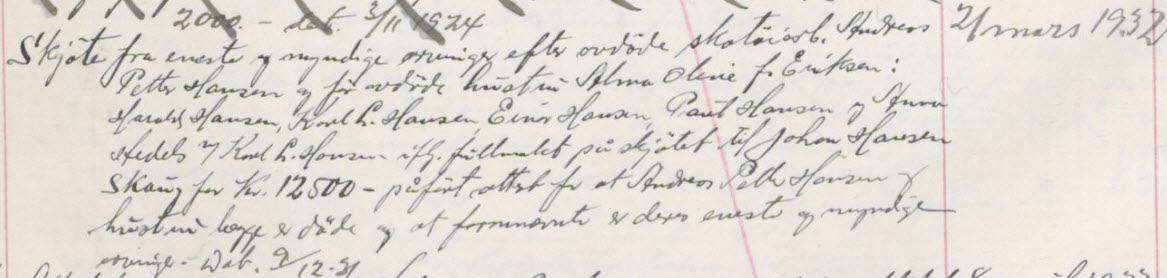 2000.- dat. 3/11 1924
Skjöte fra eneste og myndige arvinger efter avdöde skotöiarb. Andreas 21 mars 1932
Petter Hansen og før avdöde hustru Alma Oline f. Eriksen:
Harald Hansen, Karl L. Hansen, Einar Hansen, Paul Hansen og Anna
Hedels v/ Karl L. Hansen iflg. fullmakt på skjötet til Johan Hansen
Skaug for Kr. 12500 - påfört attest for at Andreas Petter Hansen og
hustru begge er döde og at fornevnte er deres eneste og myndige
arvinger. - Dat. 9/12-31